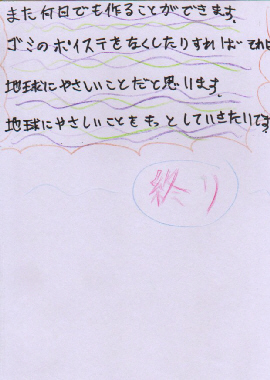 また何日でも作ることができます。
ゴミのポイステをなくしたりすれば それは
地球にやさしいことだと思います。
地球にやさしいことをもっとしていきたいです
終り